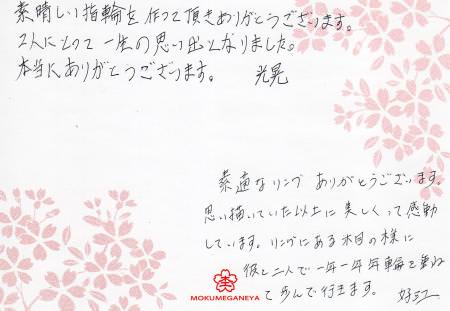 素晴しい指輪を作って頂きありがとうございます。
2人にとって一生の思い出となりました。
本当にありがとうございます。 光晃
素適なリング ありがとうございます。
思い描いていた以上に美しくって感動
しています。リングにある木目の様に
彼と二人で一年一年年輪を重ね
て歩んで行きます。 好江
MOKUMEGANEYA